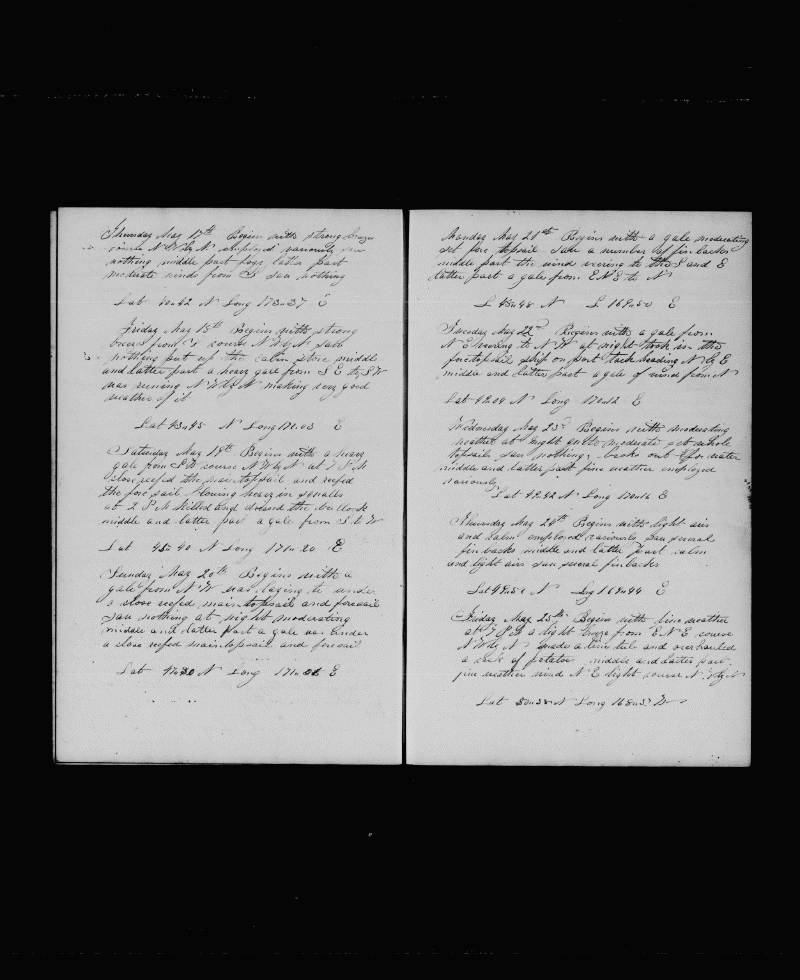 Thursday May 17th Begins with strong breezes
course N W by N employed variously saw
nothing middle part fogs latter part
moderate winds from S saw nothing
Lat 40..42 N Long 173..37 E
Friday May 18th Begins with strong
breezes from S course N W by N saw
nothing put up the cabin stove middle
and latter part a heavy gale from S E to S W
was running N W by N making very good
weather of it
Lat 43..45 N Long 172..03 E
Saturday May 19th Begins with a heavy
gale from S W course N W by N at 7 P M
close reefed the main topsail and reefed
the fore sail blowing heavy in squalls
at 2 P M killed and dressed the bullock
middle and latter par a gale from S to W
Lat 45..40 N Long 171..20 E
Sunday May 20th Begins with a
gale from N W was laying to under
a close reefed main topsail and foresail
saw nothing at night moderating
middle and latter part a gale was under
a close reefed main topsail and foresail
Lat 47..30 N Long 171..01 E
Monday May 21st Begins with a gale moderating
set fore topsail saw a number of finbacks
middle part the wind veering to the S and E
latter part a gale from E N E to N
L 48..48 N L 169..50 E
Tuesday May 22d Begins with a gale from
N E veering to N W at night took in the
foretopsail ship on port tack heading N E
middle and latter part a gale of wind from N
Lat 49..04 N Long 170..12 E
Wednesday May 23d Begins with moderating
weather at night quite moderate set whole
topsails saw nothing. broke out for water
middle and latter part fine weather employed
variously
Lat 49..42 N Long 170..16 E
Thursday May 24th Begins with light airs
and calm employed variously saw several
finbacks middle and latter part calm
and light airs saw several finbacks
Lat 49..50 N Lng 169..44 E
Friday May 25th Begins with fine weather
at 7 P M a light breeze from E N E course
N W by N made a tow tub and overhauled
a deck of potatoe middle and latter part
fine weather wind N E light course N W by N
Lat 50..38 N Long 168..5